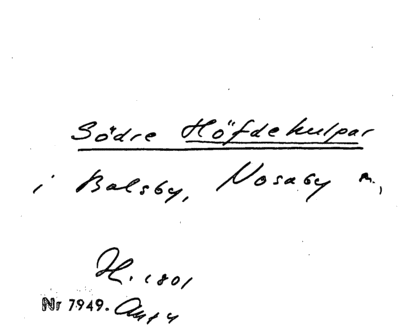 Södre Höfdehulpar
i Balsby, Nosaby m.,
H. 1801
Nr 7949.